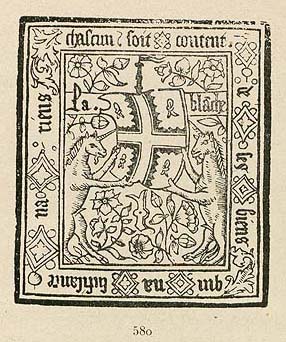 chascun soit content
de ses biens
qui na suffisance
na riens
La blāche
580